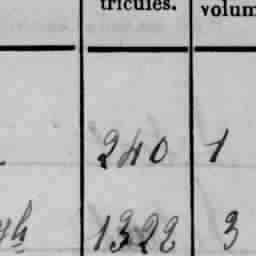 tricules. volum
240 1
1322 3